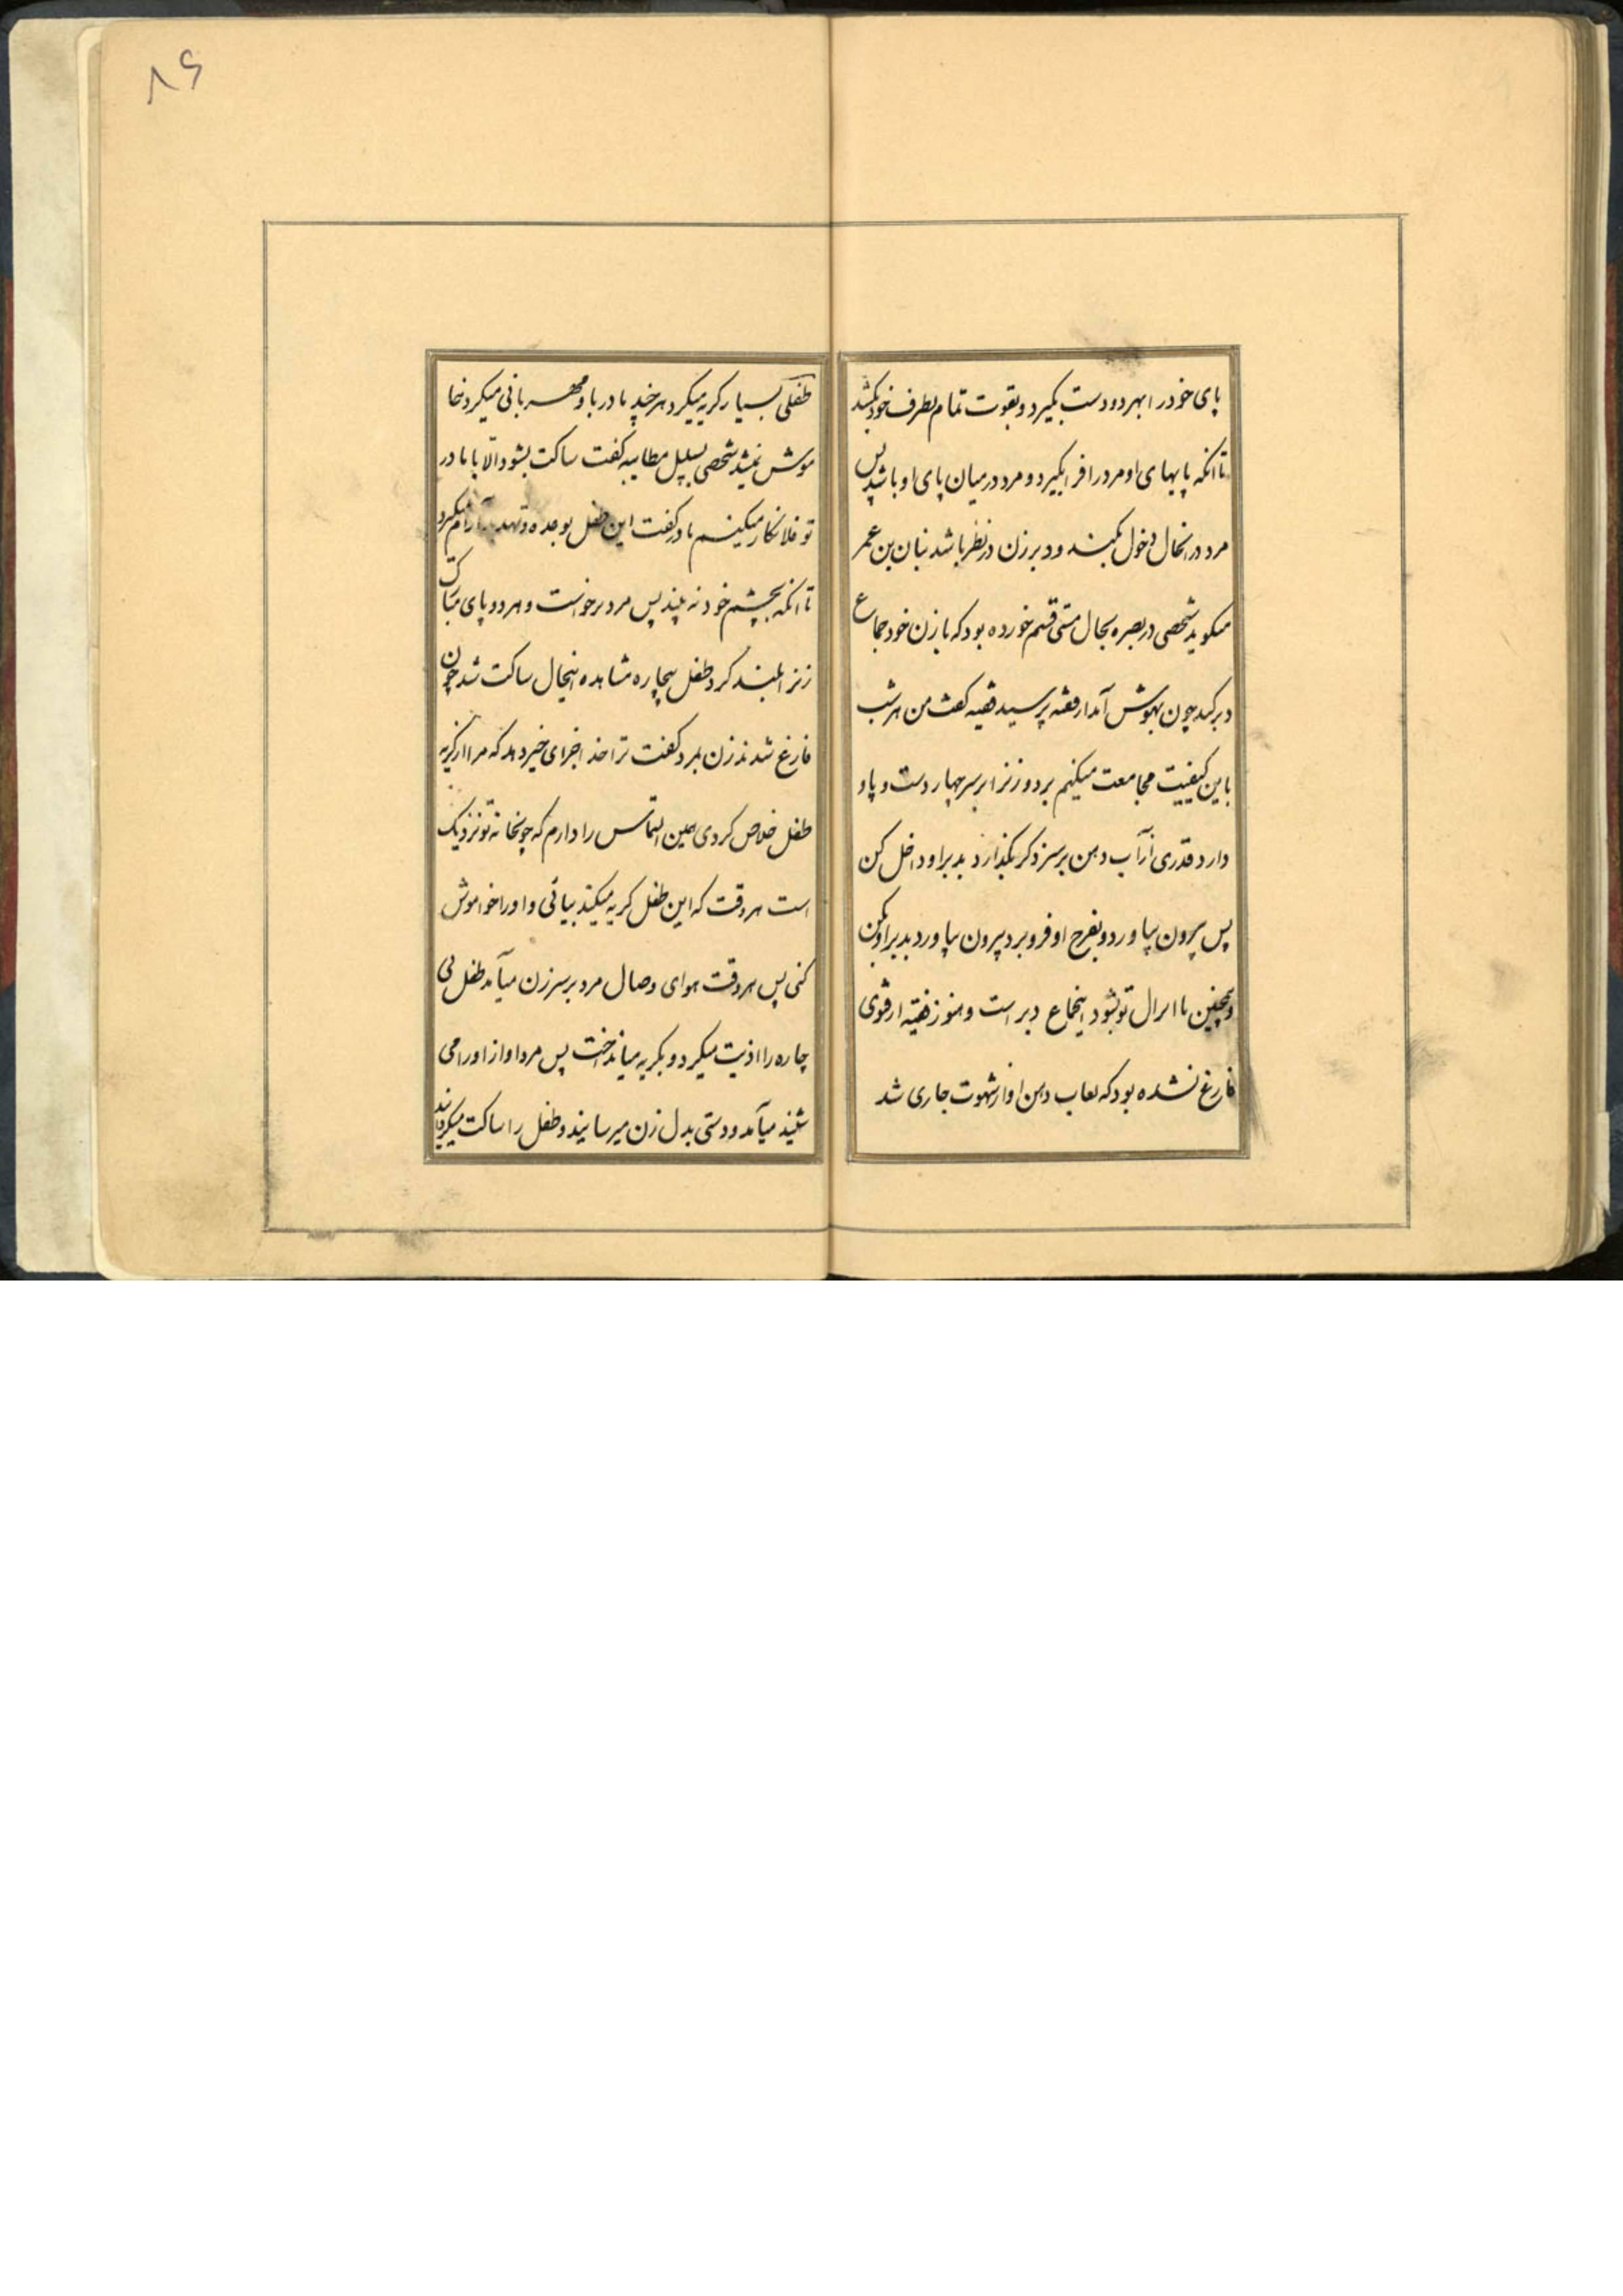 پای خود را بهر دو دست بگیرد و بقوت تمام بطرف خود بکشد
تا انکه پایهای او مرد را فرا بگیرد و مرد در میان پای او باشد پس
مرد در انحال دخول بکند و دبر زن در نظر باشد بنان بن عمر
میکوید شخصی در بصره بحال مستی قسم خورده بود که با زن خود جماع
دبر کند چون بهوش آمد از فقیه پرسید فقیه کفت من هر شب
باین کیفیت مجامعت میکنم برد و زنرا بر سر چهار دست و پا و
دارد قدری از آب دهن بر سر ذکر بگذارد بدبر او داخل کن
پس بیرون بیاورد و بفرج او فرو برد بیرون بیاورد بدبر او بکن
و همچنین تا انزال تو بشود اینجماع دبر است و هنوز فقیه از فتوی
فارغ نشده بود که لعاب دهن او از شهوت جاری شد
۸۶
طفلی بسیار کریه میکرد هر چند مادر با او مهربانی میکرد خا
موش نمیشد شخصی بسبیل مطایبه کفت ساکت بشو و الّا با مادر
تو فلانکار میکینم مادر کفت این طفل بوعده و تهدید آرام نمیکیرد
تا انکه بچشم خود نه بیند پس مرد برخواست و هر دو پای مبارک
زنرا بلند کرد طفل بیچاره مشاهده اینحال ساکت شد چون
فارغ شدند زن بمرد کفت ترا خدا جزای خیر دهد که مرا از کریه
طفل خلاص کردی همین التماس را دارم که چون خانه تو نزدیک
است هر وقت که این طفل کریه میکیند بیائی و او را خواموش
کنی پس هر وقت هوای وصال مرد بر سر زن میآمد طفل بی
چاره را اذیت میکرد و بکریه میانداخت پس مرد اواز او را می
شنید میآمد و دستی بدل زن میرسانید و طفل را ساکت میکردانید